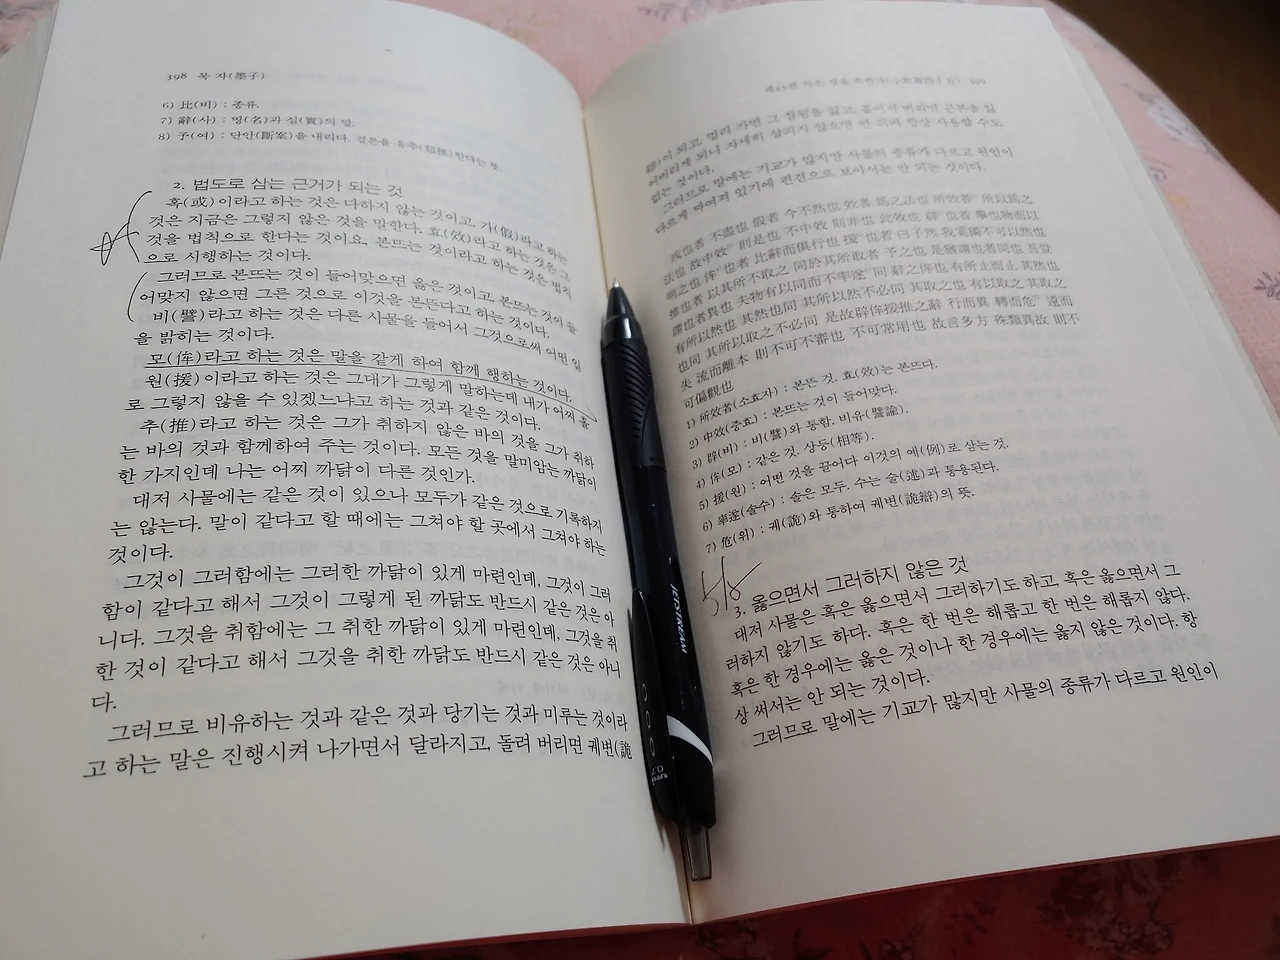 398 묵 자(墨子)
6) 比(비) : 종류.
7) 辭(사) : 명(名)과 실(實)의 말.
8) 予(여) : 단안(斷案)을 내리다. 결론을 유추(類推)한다는 뜻.
2. 법도로 삼는 근거가 되는 것
혹(或)이라고 하는 것은 다하지 않는 것이고, 가(假)라고 하는
것은 지금은 그렇지 않은 것을 말한다. 효(效)라고 하는 것은 그
것을 법칙으로 한다는 것이요, 본뜨는 것이라고 하는 것은 법칙
으로 시행하는 것이다.
그러므로 본뜨는 것이 들어맞으면 옳은 것이고, 본뜨는 것이 들
어맞지 않으면 그른 것으로 이것을 본뜬다고 하는 것이다.
비(譬)라고 하는 것은 다른 사물을 들어서 그것으로써 어떤 일
을 밝히는 것이다.
모(侔)라고 하는 것은 말을 같게 하여 함께 행하는 것이다.
원(援)이라고 하는 것은 그대가 그렇게 말하는데 내가 어찌 홀
로 그렇지 않을 수 있겠느냐고 하는 것과 같은 것이다.
추(推)라고 하는 것은 그가 취하지 않은 바의 것을 그가 취하
는 바의 것과 함께하여 주는 것이다. 모든 것을 말미암는 까닭이
한 가지인데 나는 어찌 까닭이 다른 것인가.
대저 사물에는 같은 것이 있으나 모두가 같은 것으로 기록하지
는 않는다. 말이 같다고 할 때에는 그쳐야 할 곳에서 그쳐야 하는
것이다.
그것이 그러함에는 그러한 까닭이 있게 마련인데, 그것이 그러
함이 같다고 해서 그것이 그렇게 된 까닭도 반드시 같은 것은 아
니다. 그것을 취함에는 그 취한 까닭이 있게 마련인데, 그것을 취
한 것이 같다고 해서 그것을 취한 까닭도 반드시 같은 것은 아니
다.
그러므로 비유하는 것과 같은 것과 당기는 것과 미루는 것이라
고 하는 말은 진행시켜 나가면서 달라지고, 돌려 버리면 궤변(詭
제45편 작은 것을 취한다(小取篇四十五) 399
辯)이 되고, 멀리 가면 그 참됨을 잃고, 흘어져 버리면 근본을 잃
어버리게 되니 자세히 살피지 않으면 안 되며 항상 사용할 수도
없는 것이다.
그러므로 말에는 기교가 많지만 사물의 종류가 다르고 원인이
다르게 짜여져 있기에 편견으로 보아서는 안 되는 것이다.
或也者 不盡也 假者 今不然也 效者 爲之法也 所效者 所以爲之
法也 故中效 則是也 不中效 則非也 此效也 辟也者 擧也物而以
明之也 侔也者 比辭而俱行也 援也者 曰子然 我奚獨不可以然也
推也者 以其所不取之 同於其所取者 予之也 是猶謂也者同也 吾豈
謂也者異也 夫物有以同而不率遂同 辭之侔也 有所止而正 其然也
有所以然也 其然也同 其所以然不必同 其取之也 有以取之 其取之
也同 其所以取之不必同 是故辟侔援推之辭 行而異 轉而危 遠而
失 流而離本 則不可不審也 不可常用也 故言多方 殊類異故 則不
可偏觀也
1) 所效者(소효자) : 본뜬 것. 효(效)는 본뜨다.
2) 中效(중효) : 본뜨는 것이 들어맞다.
3) 辟(비) : 비(譬)와 통함. 비유(譬諭).
4) 侔(모) : 같은 것. 상등(相等).
5) 援(원) : 어떤 것을 끌어다 이것의 예(例)로 삼는 것.
6) 率遂(솔수) : 솔은 모두. 수는 술(述)과 통용된다.
7) 危(위) : 궤(詭)와 통하여 궤변(詭辯)의 뜻.
3. 옳으면서 그러하지 않은 것
대저 사물은 혹은 옳으면서 그러하기도 하고, 혹은 옳으면서 그
러하지 않기도 하다. 혹은 한 번은 해롭고 한 번은 해롭지 않다.
혹은 한 경우에는 옳은 것이나 한 경우에는 옳지 않은 것이다. 항
상 써서는 안 되는 것이다.
그러므로 말에는 기교가 많지만 사물의 종류가 다르고 원인이
JETSTREAM
uni 0.7